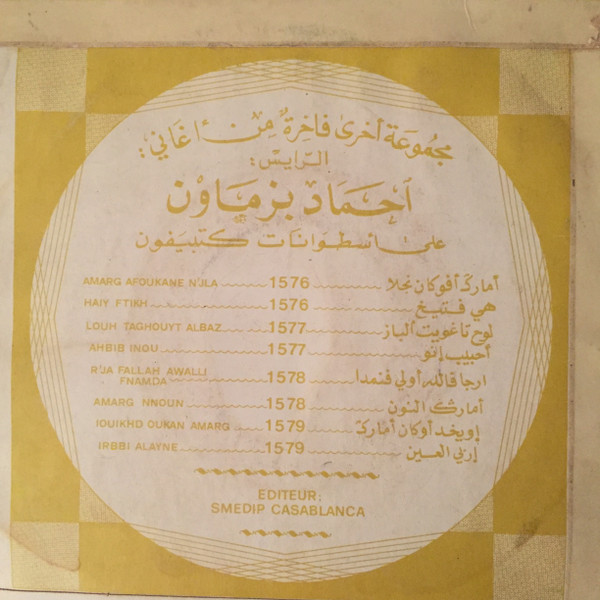 مجموعة أخرى فاخرة من أغاني:
الرايس:
أحماد بزماون
على اسطوانات كتبيفون
AMARG AFOUKANE N'JLA 1576 أمارك أفوكان نجلا
HAIY FTIKH 1576 هي فتيخ
LOUH TAGHOUYT ALBAZ 1577 لوح تاغويت الباز
AHBIB INOU 1577 أحبيب إنو
R'JA FALLAH AWALLI
FNAMDA 1578 ارجا فالله أولي فنمدا
AMARG NNOUN 1578 أمارك النون
IOUIKHD OUKAN AMARG 1579 إويخد أوكان أمارك
IRBBI ALAYNE 1579 إربي العين
EDITEUR:
SMEDIP CASABLANCA